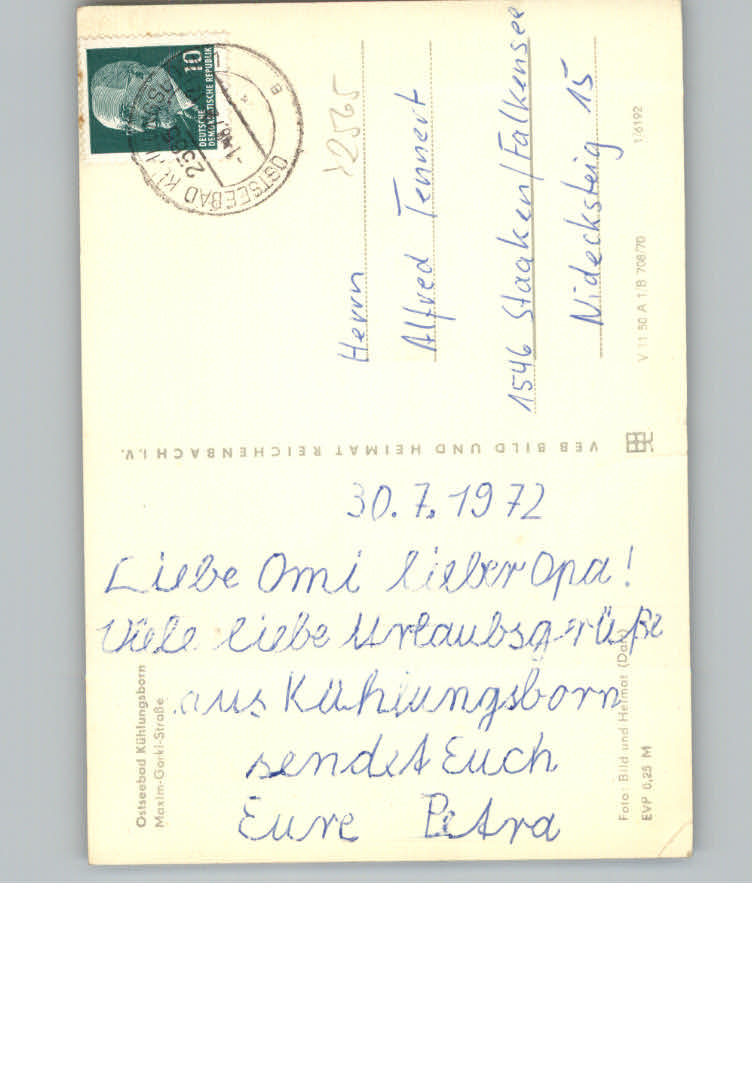 30.7.1972
Liebe Omi lieber Opa!
Viele liebe Urlaubsgrüße
aus Kühlungsborn
sendet Euch
Eure Petra
Ostseebad Kühlungsborn
Maxim-Gorki-Straße
Foto: Bild und Heimat
EVP 0,25 M
VEB BILD UND HEIMAT REICHENBACH I.V.
10
DEUTSCHE
DEMOKRATISCHE REPUBLIK
OSTSEEBAD
Herrn
Alfred Tennert
1546 Staaken/Falkensee
Nidecksteig 15
V 11 50 A 1/B 708/70
1/6192